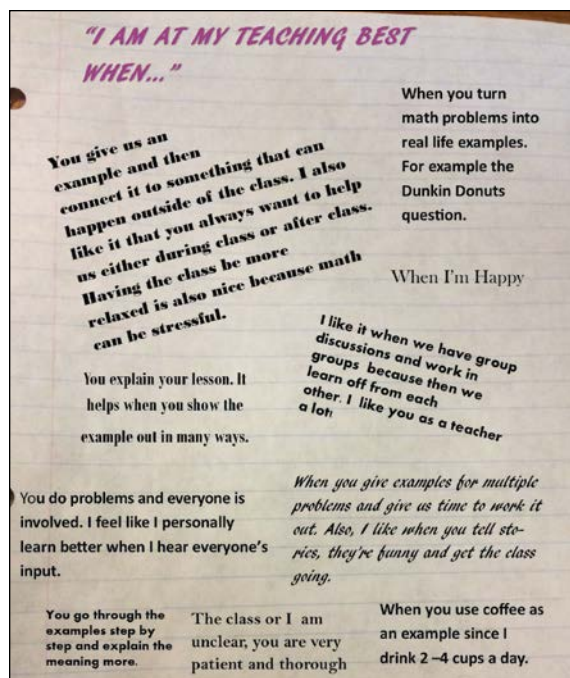 "I AM AT MY TEACHING BEST
WHEN..."
When you turn
math problems into
real life examples.
For example the
Dunkin Donuts
question.
You give us an
example and then
connect it to something that can
happen outside of the class. I also
like it that you always want to help
us either during class or after class.
Having the class be more
relaxed is also nice because math
can be stressful.
When I'm Happy
I like it when we have group
discussions and work in
groups because then we
learn off from each
other. I like you as a teacher
a lot!
You explain your lesson. It
helps when you show the
example out in many ways.
When you give examples for multiple
problems and give us time to work it
out. Also, I like when you tell sto-
ries, they're funny and get the class
going.
You do problems and everyone is
involved. I feel like I personally
learn better when I hear everyone's
input.
You go through the
examples step by
step and explain the
meaning more.
The class or I am
unclear, you are very
patient and thorough
When you use coffee as
an example since I
drink 2 –4 cups a day.